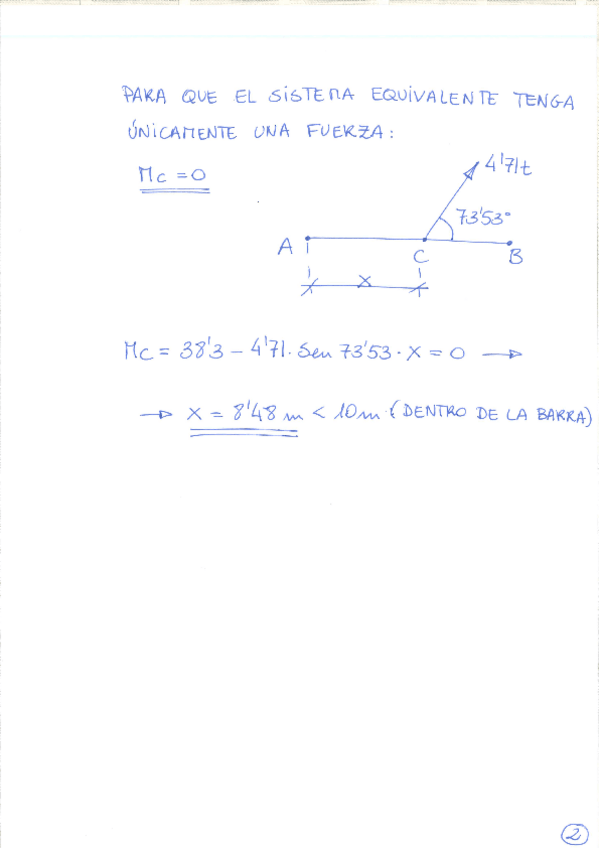 PARA QUE EL SISTEMA EQUIVALENTE TENGA
ÚNICAMENTE UNA FUERZA:
Mc = 0
4'71t
73'53°
A
C
B
x
Mc = 38'3 - 4'71. Sen 73'53 · x = 0 →
→ x = 8'48 m < 10m. (DENTRO DE LA BARRA)
2